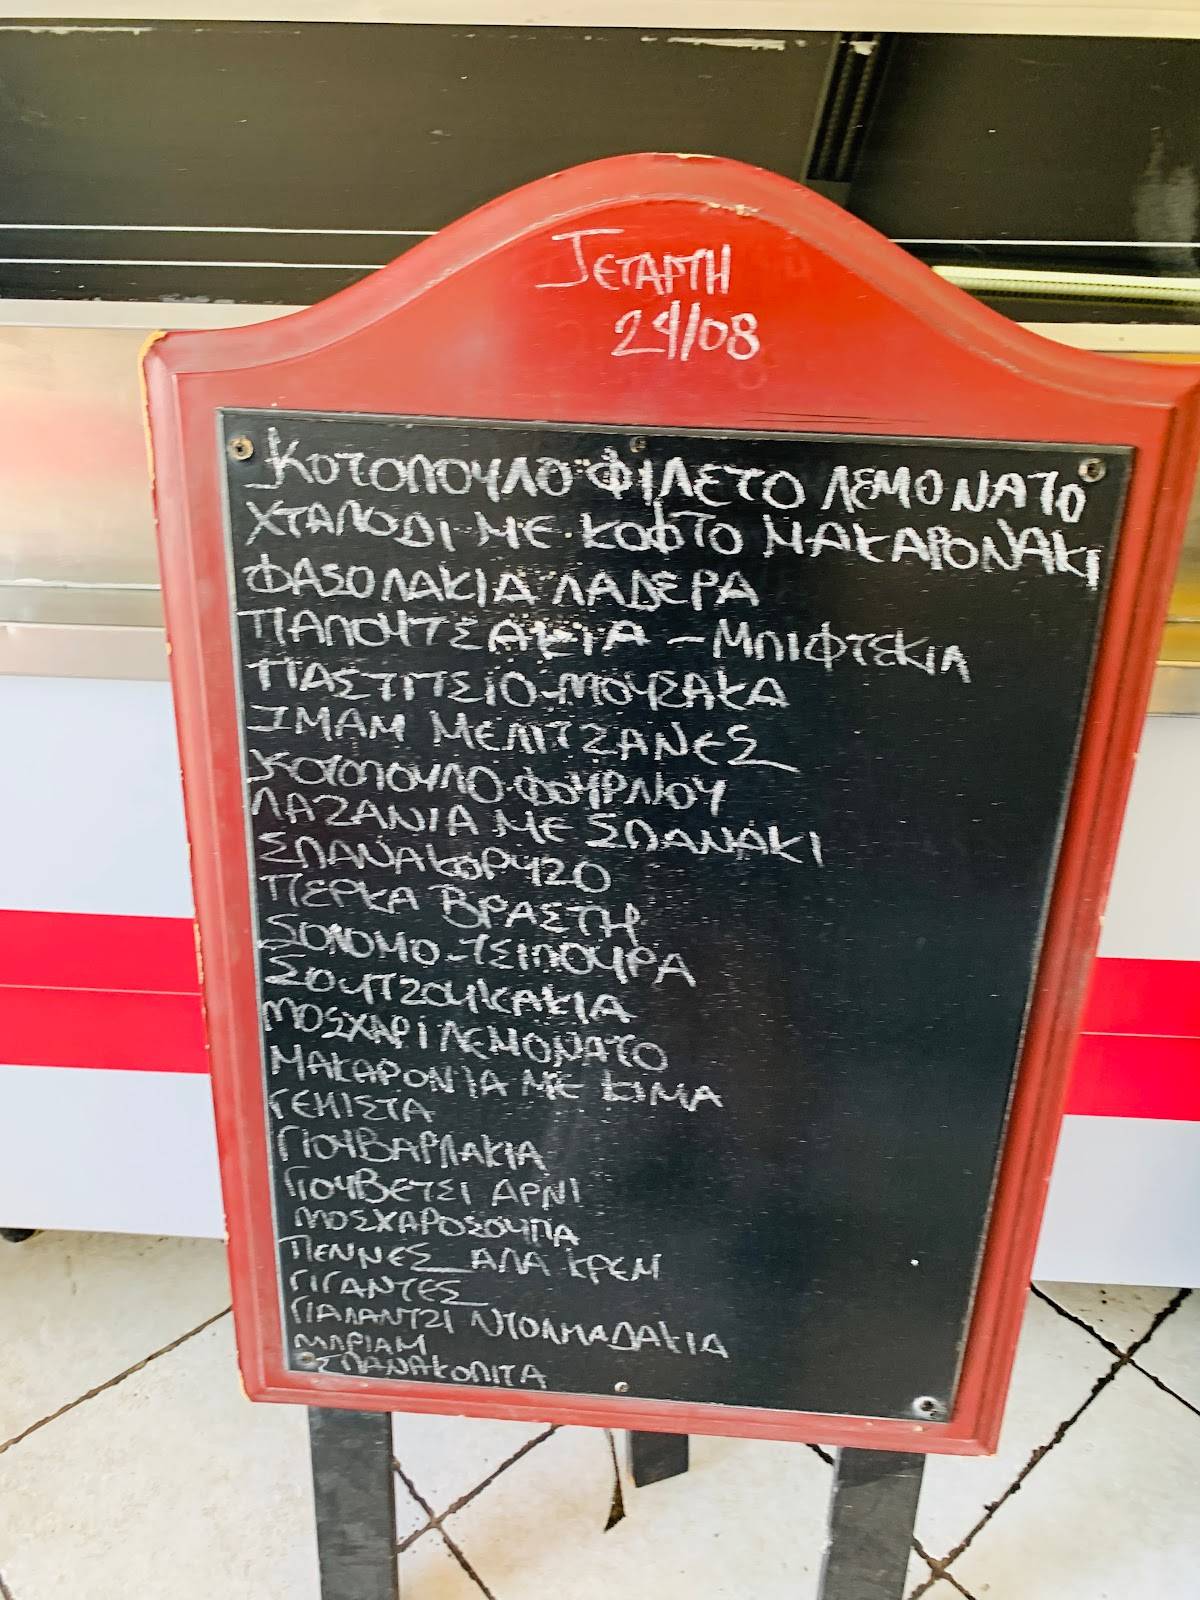 ΤΕΤΑΡΤΗ
24/08
ΚΟΤΟΠΟΥΛΟ ΦΙΛΕΤΟ ΛΕΜΟΝΑΤΟ
ΧΤΑΠΟΔΙ ΜΕ ΚΟΦΤΟ ΜΑΚΑΡΟΝΑΚΙ
ΦΑΣΟΛΑΚΙΑ ΛΑΔΕΡΑ
ΠΑΠΟΥΤΣΑΚΙΑ - ΜΠΙΦΤΕΚΙΑ
ΠΑΣΤΙΤΣΙΟ - ΜΟΥΣΑΚΑ
ΙΜΑΜ ΜΕΛΙΤΖΑΝΕΣ
ΚΟΤΟΠΟΥΛΟ ΦΟΥΡΝΟΥ
ΛΑΖΑΝΙΑ ΜΕ ΣΠΑΝΑΚΙ
ΣΠΑΝΑΚΟΡΥΖΟ
ΠΕΡΚΑ ΒΡΑΣΤΗ
ΣΟΛΟΜΟ - ΤΣΙΠΟΥΡΑ
ΣΟΥΤΖΟΥΚΑΚΙΑ
ΜΟΣΧΑΡΙ ΛΕΜΟΝΑΤΟ
ΜΑΚΑΡΟΝΙΑ ΜΕ ΚΙΜΑ
ΓΕΜΙΣΤΑ
ΓΙΟΥΒΑΡΛΑΚΙΑ
ΓΙΟΥΒΕΤΣΙ ΑΡΝΙ
ΜΟΣΧΑΡΟΣΟΥΠΑ
ΠΕΝΝΕΣ ΑΛΑ ΚΡΕΜ
ΓΙΓΑΝΤΕΣ
ΓΙΑΛΑΝΤΖΙ ΝΤΟΛΜΑΔΑΚΙΑ
ΜΠΡΙΑΜ
ΣΠΑΝΑΚΟΠΙΤΑ